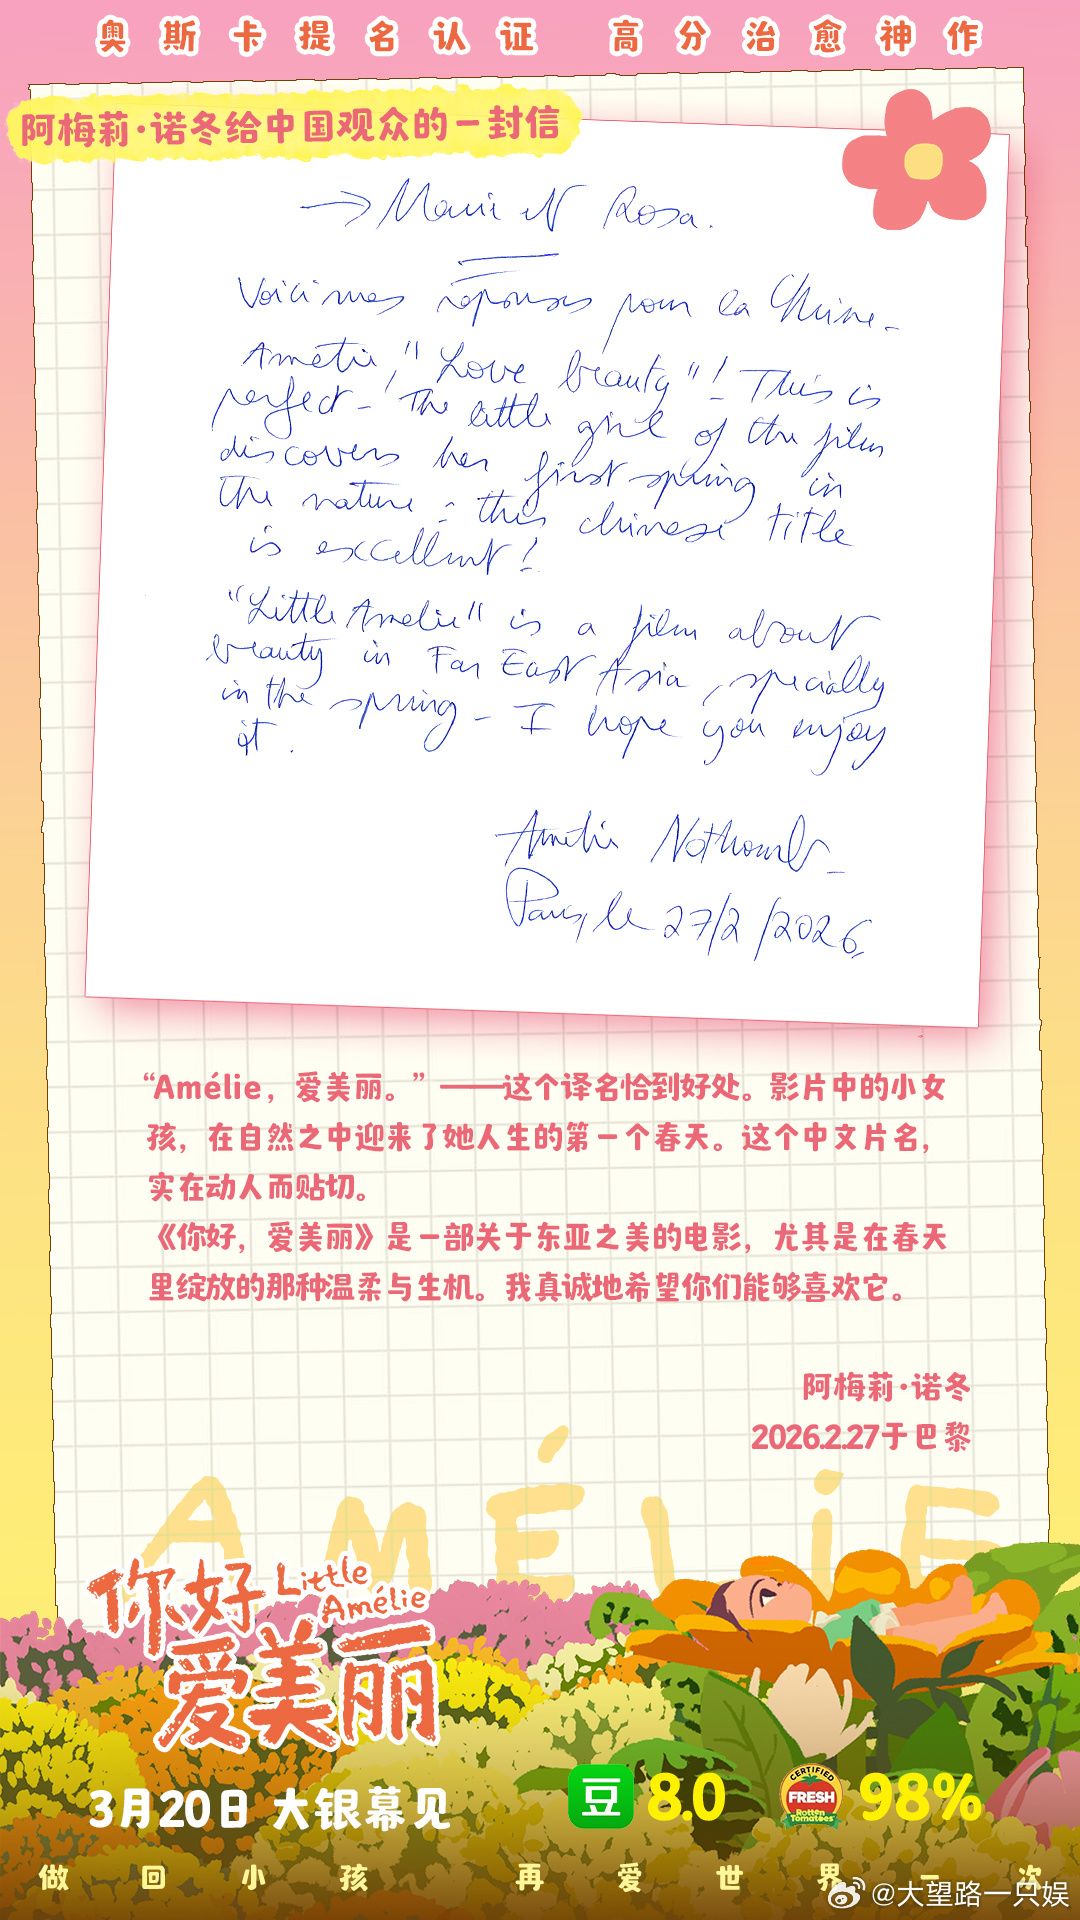 奥斯卡提名认证 高分治愈神作
阿梅莉·诺冬给中国观众的一封信
→ Marie et Rosa.
Voici mes réponses pour la Chine -
Amélie, "Love beauty"! This is
perfect - The little girl of the film
discovers her first spring in
the nature - this chinese title
is excellent!
"Little Amélie" is a film about
beauty in Far East Asia, specially
in the spring - I hope you enjoy
it.
Amélie Nothomb -
Paris, le 27/2/2026
“Amélie，爱美丽。”——这个译名恰到好处。影片中的小女
孩，在自然之中迎来了她人生的第一个春天。这个中文片名，
实在动人而贴切。
《你好，爱美丽》是一部关于东亚之美的电影，尤其是在春天
里绽放的那种温柔与生机。我真诚地希望你们能够喜欢它。
阿梅莉·诺冬
2026.2.27于巴黎
AMÉLiE
你好 Little
Amélie
爱美丽
3月20日 大银幕见
豆 8.0 CERTIFIED FRESH Rotten Tomatoes 98%
做回小孩 再爱世界一次
@大望路一只娱